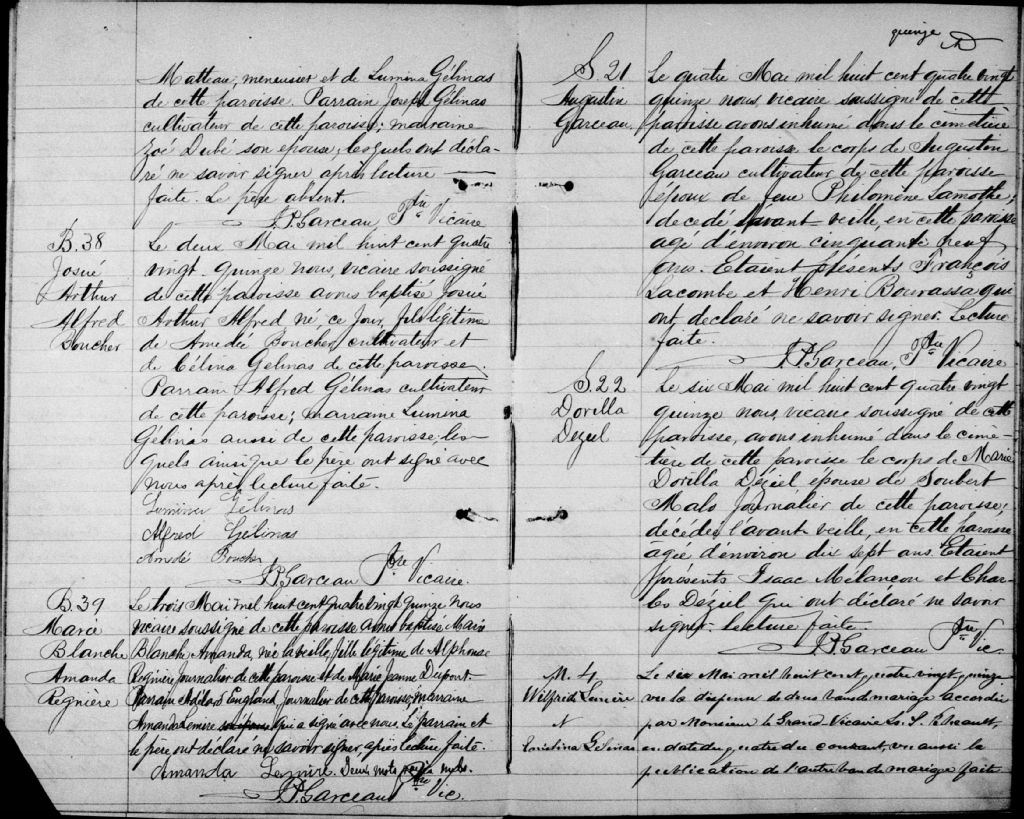 Matteau, menuisier et de Lumina Gélinas
de cette paroisse. Parrain Joseph Gélinas
cultivateur de cette paroisse; marraine
Zoé Dubé son épouse, lesquels ont décla-
ré ne savoir signer après lecture
faite. Le père absent.
J.P. Garceau, Ptre Vicaire
B.38
Josué
Arthur
Alfred
Boucher
Le deux Mai mil huit cent quatre
vingt-quinze nous, vicaire soussigné
de cette paroisse avons baptisé Josué
Arthur Alfred né, ce jour, fils légitime
de Amedée Boucher, cultivateur et
de Célina Gélinas de cette paroisse.
Parrain Alfred Gélinas cultivateur
de cette paroisse; marraine Lumina
Gélinas aussi de cette paroisse, les-
quels ainsi que le père ont signé avec
nous après lecture faite.
Lumina Gélinas
Alfred Gélinas
Amedé Boucher
J.P. Garceau Ptre Vicaire.
B.39
Marie
Blanche
Amanda
Regnière
Le trois Mai mil huit cent quatre vingt quinze nous
vicaire soussigné de cette paroisse avons baptisé Marie
Blanche Amanda, née la veille, fille légitime de Alphonse
Regnière journalier de cette paroisse et de Marie Jeanne Dupont.
Parrain Adélard England, journalier de cette paroisse, marraine
Amanda Lemire qui a signé avec nous. Le parrain et
le père ont déclaré ne savoir signer, après lecture faite.
Amanda Lemire. Deux mots nuls.
J.P. Garceau Ptre Vic.
quinze
S.21
Augustin
Garceau.
Le quatre Mai mil huit cent quatre vingt
quinze nous, vicaire soussigné de cette
paroisse avons inhumé dans le cimetière
de cette paroisse le corps de Augustin
Garceau cultivateur de cette paroisse
époux de feue Philomène Lamothe,
décedé l'avant-veille, en cette paroisse
agé d'environ cinquante neuf
ans. Etaient présents François
Lacombe et Henri Bourassa qui
ont declaré ne savoir signer. Lecture
faite.
J.P. Garceau, Ptre Vicaire
S.22
Dorilla
Deziel
Le six Mai mil huit cent quatre vingt
quinze nous, vicaire soussigné de cette
paroisse, avons inhumé dans le cime-
tière de cette paroisse le corps de Marie
Dorilla Déziel épouse de Joubert
Malo journalier de cette paroisse,
décédée l'avant veille, en cette paroisse
agée d'environ dix sept ans. Etaient
présents Isaac Mélançon et Char-
les Déziel qui ont déclaré ne savoir
signer. Lecture faite.
J.P. Garceau Ptre Vic.
M. 4
Wilfrid Lemire
&
Gélinas
Le six Mai mil huit cent quatre vingt quinze
vu la dispense de deux bans de mariage accordée
par Monsieur le Grand Vicaire
en date du quatre du courant, vu aussi la
publication de l'autre ban de mariage faite